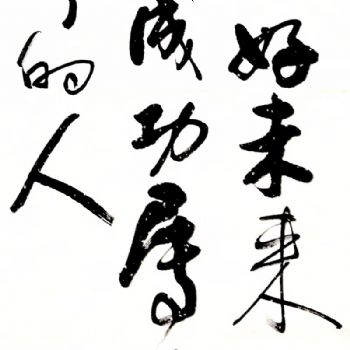 好未来
成功属
的人